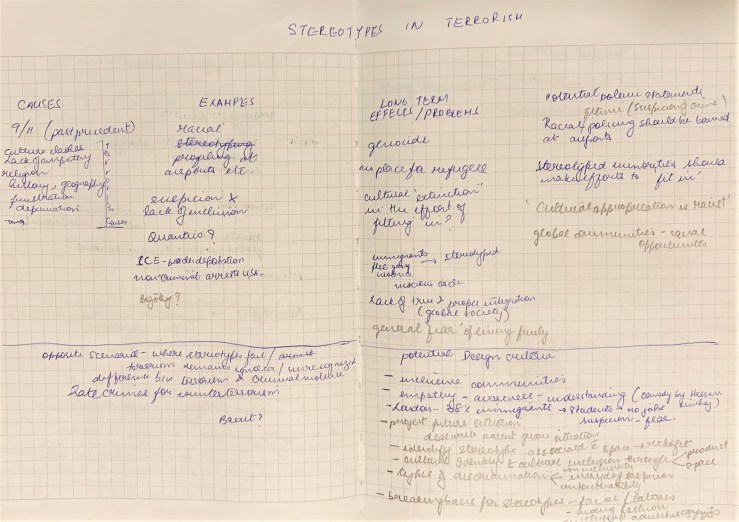 STEREOTYPES IN TERRORISM
CAUSES
9/11 (past precedent)
culture clashes
Lack of empathy
religion
history, geography
frustration
deprivation
Causes
EXAMPLES
racial
stereotyping
profiling at
airports etc.
suspicion &
lack of inclusion
Quantico?
ICE - border deportation
non-criminal arrests USA.
Bigotry?
LONG TERM
EFFECTS/PROBLEMS
genocide
no place for refugee
cultural 'extinction'
in the effort of
fitting in?
immigrants
flee
→ stereotyped
vicious circle
Lack of true & proper integration
(global society)
general fear of living freely
Potential problem statements
(suspicion of crime)
Racial policing should be banned
at airports
Stereotyped minorities should
make efforts to 'fit in'
'Cultural appropriation is racist'
global communities - equal
opportunities
Opposite scenario - where stereotypes fail /
terrorism remains ignored / unrecognized
difference b/w terrorism & criminal violence
Hate crimes for counterterrorism
Brexit?
potential Design criteria
- inclusive communities
- empathy - awareness - understanding (comedy by Hassan
Minhaj)
- London - 38% immigrants → students → no jobs
suspicion - fear.
- project future situation
- identify stereotype associated c̄ space →
- cultural identity & cultural inclusion through < product
space
- types of discrimination <
everyday suspicion
- breaking bases for stereotypes - facial features